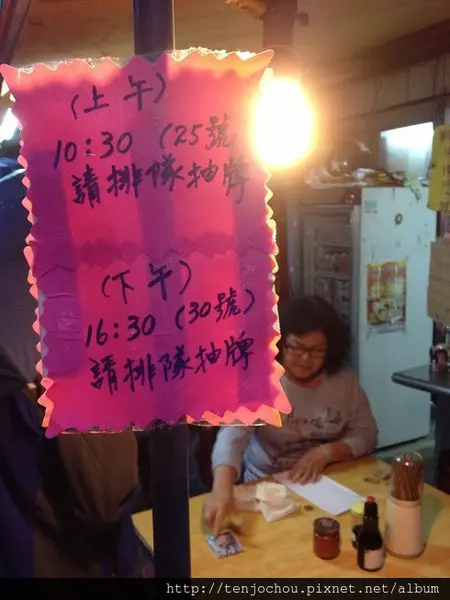 (上午)
10:30 (25號
請排隊抽牌
(下午)
16:30 (30號)
請排隊抽牌
http://tenjochou.pixnet.net/album